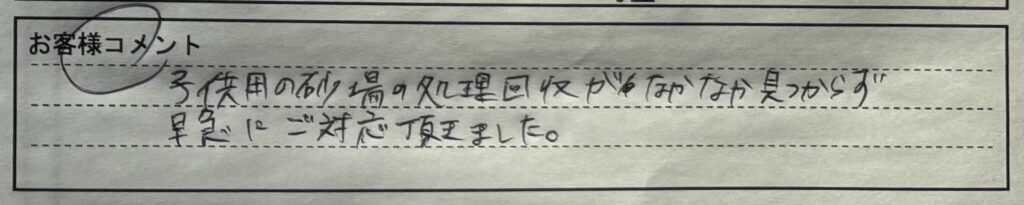 お客様コメント
子供用の砂場の処理回収がなかなか見つからず
早急にご対応頂きました。